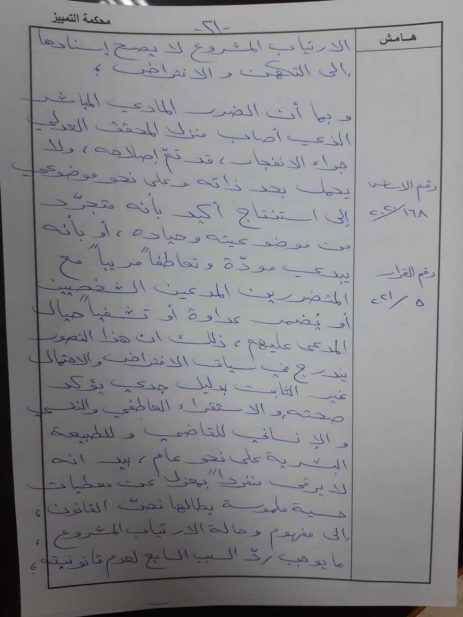 محكمة التمييز
-٢١-
هامش
الارتياب المشروع لا يصح إسنادها
إلى التكهّن والافتراض ؛
وبما أن الضرر المادي المباشر
الذي أصاب منزل المحقق العدلي
جراء الانفجار، قد تمّ إصلاحه، ولا
يحمل بحد ذاته وعلى نحو موضوعي
إلى استنتاج أكيد بأنه متجرّد
من موضوعيته وحياده، أو بأنه
يبدي مودّة وتعاطفاً مريباً مع
المتضررين المدعين الشخصيين
أو يُضمر عداوة أو تشفياً حيال
المدعى عليهم، ذلك ان هذا التصور
يندرج في سياق الافتراض والاحتمال
غير الثابت بدليل جدي يؤكد
صحته، والاستقراء العاطفي والنفسي
والإنساني للقاضي وللطبيعة
البشرية على نحو عام، بيد انه
لا يرقى منفرداً بمعزل عن معطيات
حسية ملموسة يطالها نصّ القانون،
إلى مفهوم وحالة الارتياب المشروع،
ما يوجب ردّ السبب السابع لعدم قانونيته؛
رقم الاساس
١٦٨/٢٠٢١
رقم القرار
٥/٢٠٢١